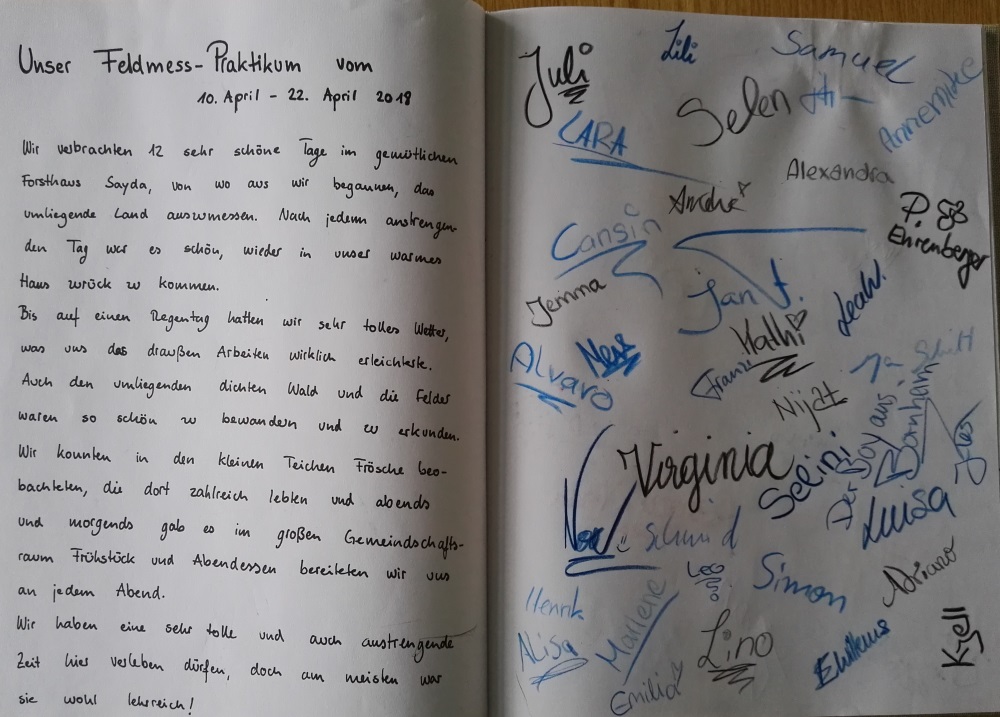 Unser Feldmess-Praktikum vom
10. April - 22. April 2018
Wir verbrachten 12 sehr schöne Tage im gemütlichen
Forsthaus Sayda, von wo aus wir begannen, das
umliegende Land auszumessen. Nach jedem anstrengen-
den Tag war es schön, wieder in unser warmes
Haus zurück zu kommen.
Bis auf einen Regentag hatten wir sehr tolles Wetter,
was uns das draußen Arbeiten wirklich erleichterte.
Auch den umliegenden dichten Wald und die Felder
waren so schön zu bewandern und zu erkunden.
Wir konnten in den kleinen Teichen Frösche beo-
bachteten, die dort zahlreich lebten und abends
und morgends gab es im großen Gemeindschafts-
raum Frühstück und Abendessen bereiteten wir uns
an jedem Abend.
Wir haben eine sehr tolle und auch anstrengende
Zeit hier verleben dürfen, doch am meisten war
sie wohl lehrreich!
Juli
Lili
Samuel
Selen
Annemieke
LARA
Alexandra
André
P.
Ehrenberger
Cansin
Jemma
Jan J.
Lea W.
Kathi
Alvaro
Ness
Franzi
Nijat
Virginia
Selini
Der Boy aus
Bornheim
Luisa
Schmid
Leo
Simon
Adriano
Henrik
Alisa
Marlene
Lino
Kjell
Emilia